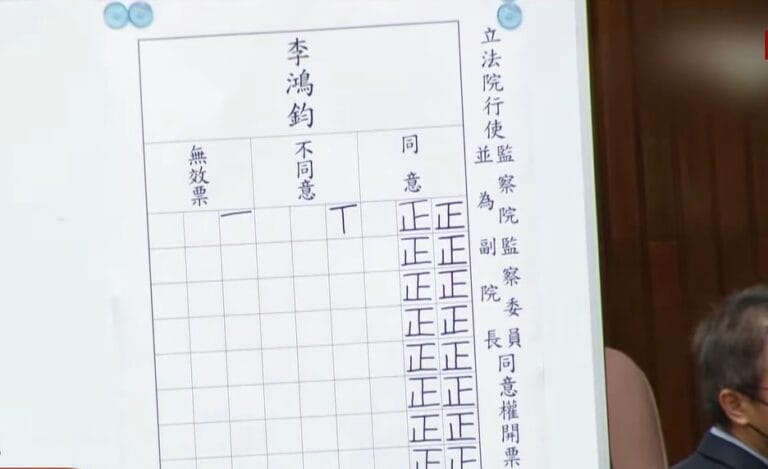 立法院行使
監察院監察委員
並為副院長
同意權開票
李鴻鈞
同意
正正正正正正正正
正正正正正正正正
不同意
丅
無效票
一